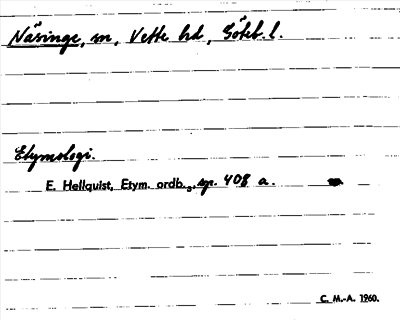 Näsinge, sn, Vette hd, Göteb. l.
Etymologi.
E. Hellquist, Etym. ordb.3, sp. 408 a.
C. M.-A. 1960.